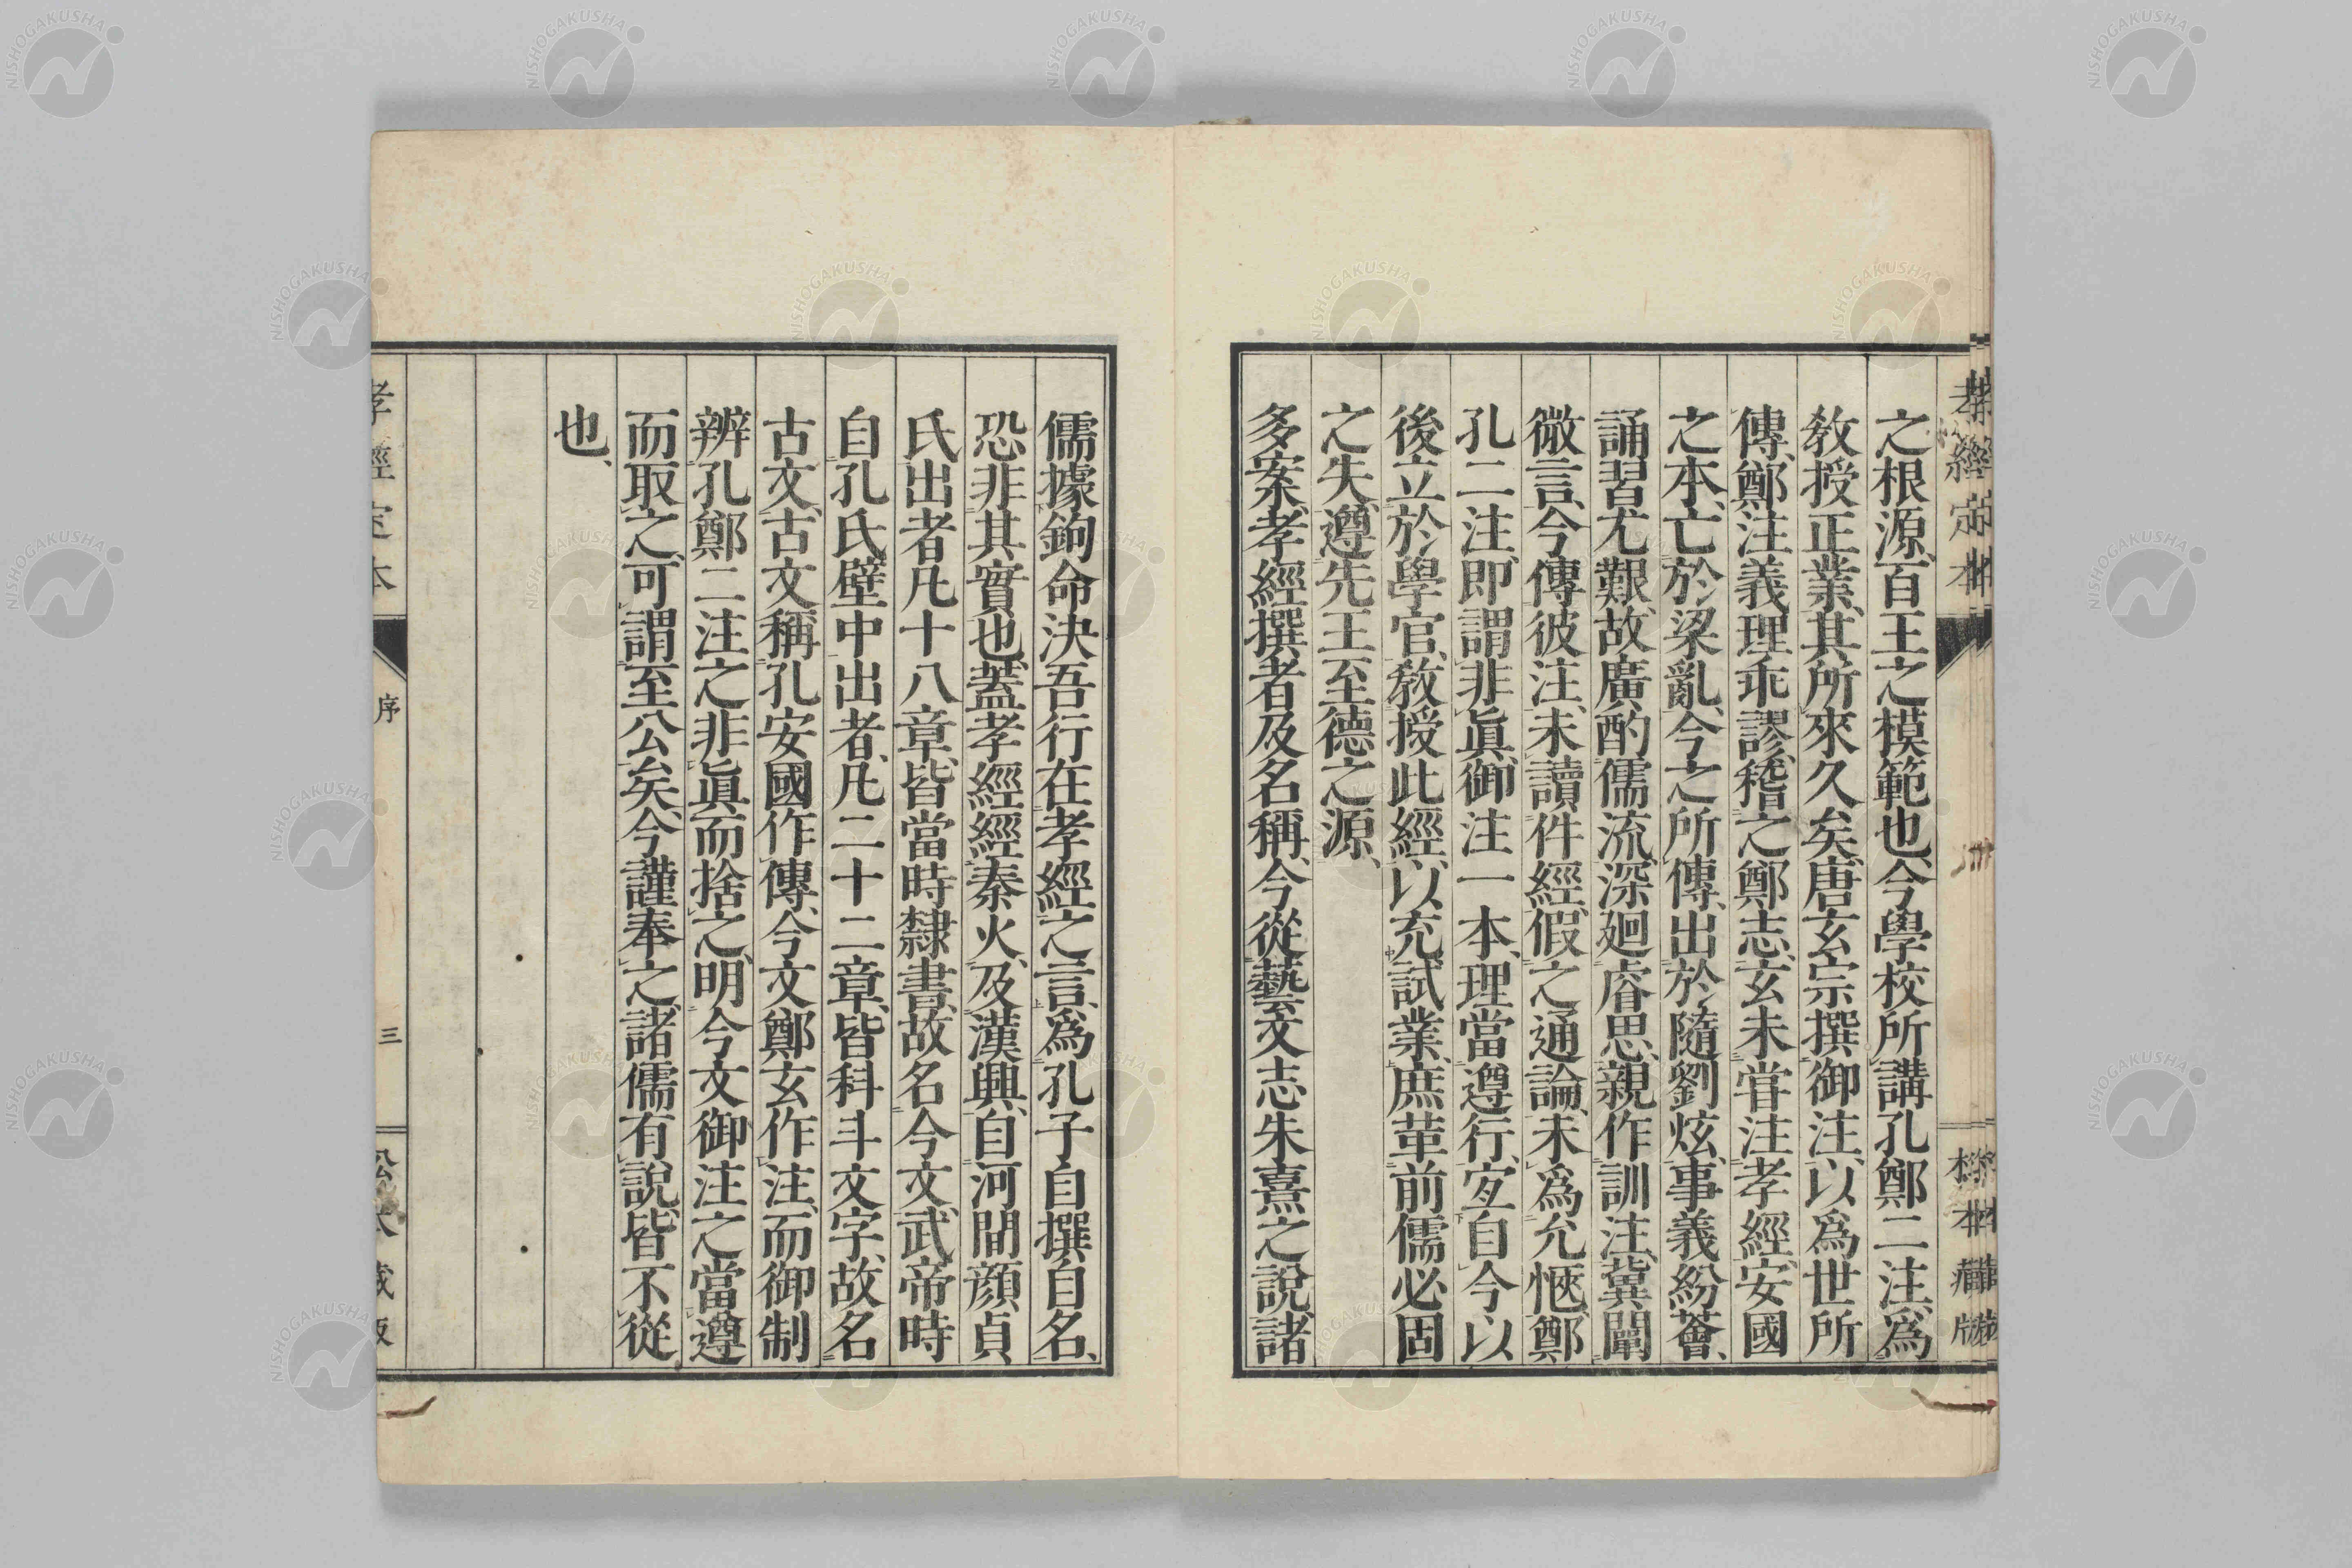 之根源、百王之模範也、今學校所講孔鄭二注、爲
教授正業、其所來久矣、唐玄宗撰御注、以爲世所
傳、鄭注義理乖謬、稽之鄭志、玄未甞注孝經、安國
之本、亡於梁亂、今之所傳、出於隨劉炫、事義紛薈、
誦習尤艱、故廣酌儒流、深廻睿思、親作訓注、冀闡
微言、今傳彼注、未讀件經、假之通論、未爲允愜、鄭
孔二注、即謂非眞、御注一本、理當遵行、宐自今以
後立於學官、教授此經、以充試業、庶革前儒必固
之失、遵先王至德之源、
多案、孝經撰者及名稱、今從藝文志朱熹之說、諸
儒據鉤命決吾行在孝經之言、爲孔子自撰自名、
恐非其實也、蓋孝經經秦火、及漢興、自河間顏貞
氏出者凡十八章、皆當時隸書、故名今文、武帝時
自孔氏壁中出者、凡二十二章、皆科斗文字、故名
古文、古文稱孔安國作傳、今文鄭玄作注、而御制
辨孔鄭二注之非眞而捨之、明今文御注之當遵
而取之、可謂至公矣、今謹奉之、諸儒有說、皆不從
也、
孝經定本
序
三
松本藏版
NISHOGAKUSHA